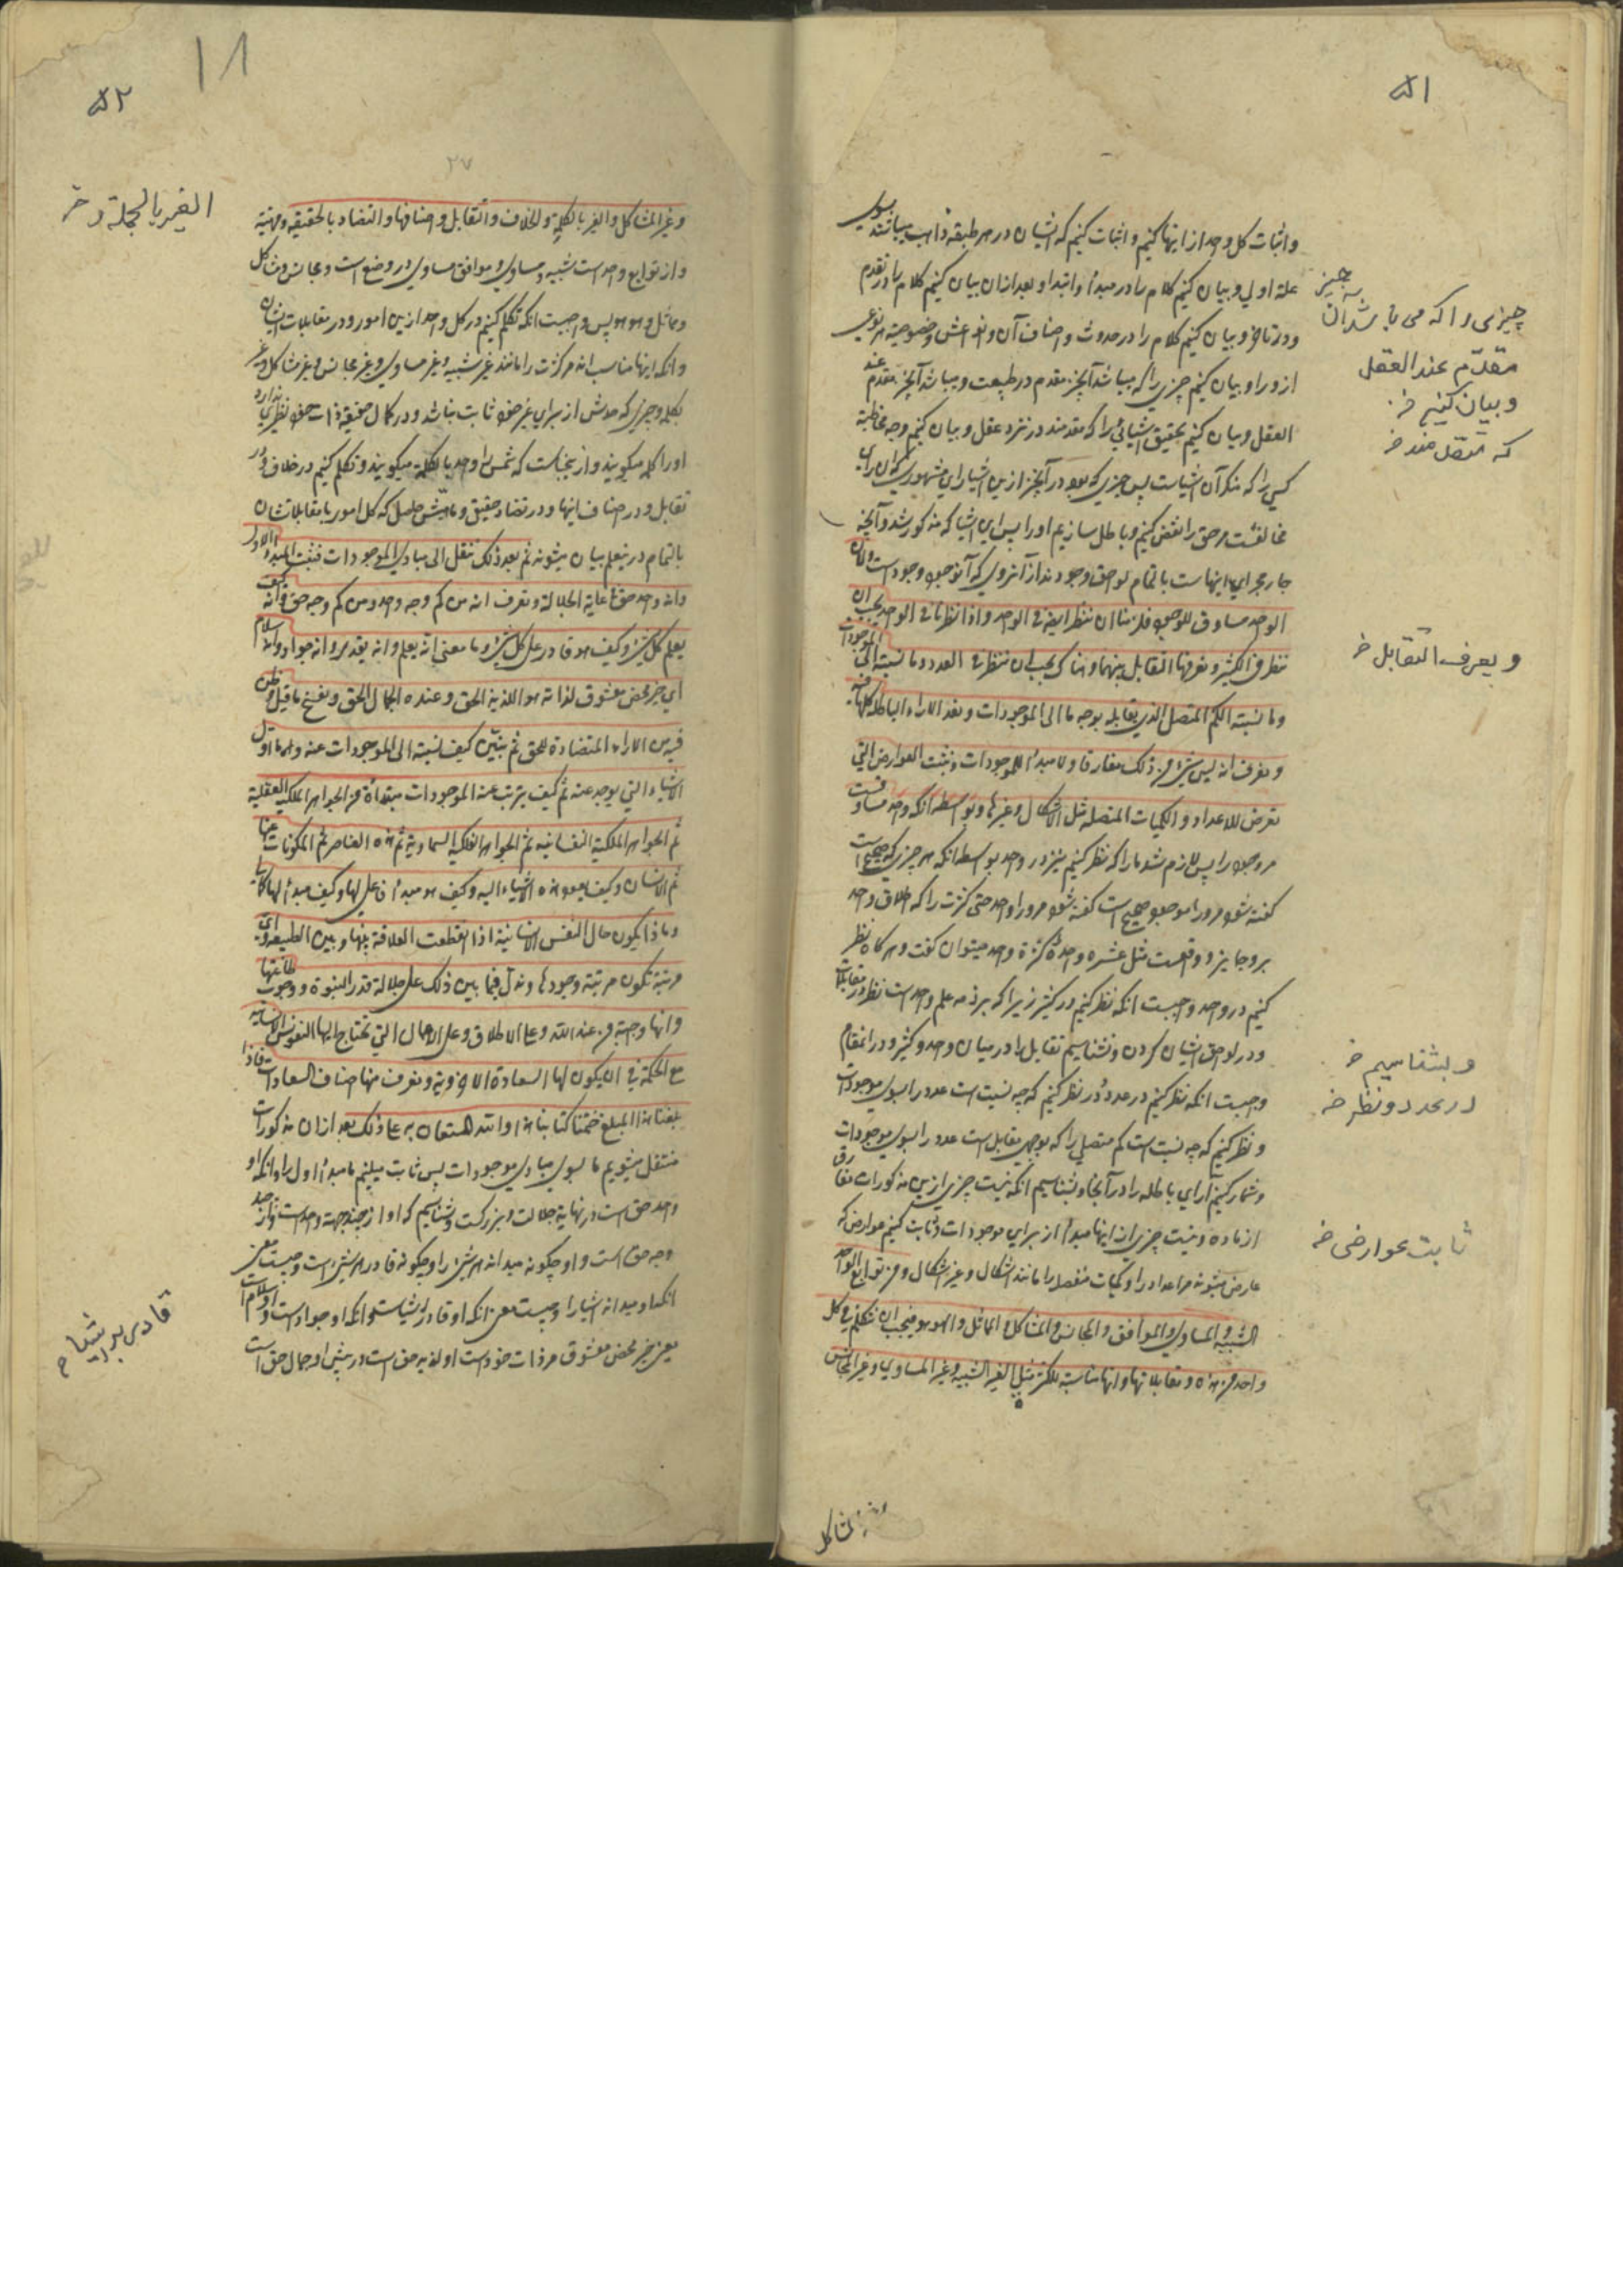 ۵۱
و اثبات کل واحد از اینها کنیم و اثبات کنیم که ایشان در هر طبقه ذاهب میباشند بسوی
علة اولی و بیان کنیم کلام را در مبدأ و ابتدا و بعد ازان بیان کنیم کلام را در تقدم
و در تاخر و بیان کنیم کلام را در حدوث و اصناف آن و انواعش و خصوصیة هر نوعی
از و را و بیان کنیم چیزی را که میباشد آنچیز مقدم در طبیعت و میباشد آنچیز مقدم عند
العقل و بیان کنیم تحقیق اشیائی را که مقدمند در نزد عقل و بیان کنیم وجه مخاطبة
کسی را که منکر آن اشیاست پس چیزی که بود در آنچیز ازین اشیا رای مشهوری که آن رای
مخالفست مر حق را نقض کنیم و باطل سازیم او را پس این اشیا که مذکور شد و آنچه
جاری مجرای اینهاست بالتمام لواحق وجودند از آنروی که آنوجود وجود است ولان
الوحد مساوق للوجود فلزمنا ان ننظر ایضا فی الواحد و اذا نظرنا فی الواحد یجب ان
ننظر فی الکثیر و نعرف التقابل بینهما و هناک یجب ان ننظر فی العدد و ما نسبته الی الموجودات
و ما نسبته الکم المتصل الذی یقابله بوجه ما الی الموجودات و نعد الاراء الباطلة کلها فیه
و نعرف انه لیس شیء من ذلک مفارقا و لا مبدأ للموجودات و نثبت العوارض التی
تعرض للاعداد و الکمیات المتصله مثل الاشکال و غیرها و بواسطه انکه واحد مساوقست
مر وجود را پس لازم شد ما را که نظر کنیم نیز در واحد بواسطه انکه هر چیزی که صحیح است
گفته شود مر و را موجود صحیح است گفته شود مر و را واحد حتی کثرت را که اطلاق واحد
بر و جایز و واقعست مثل عشره واحدة کثرة واحد میتوان گفت و هر گاه نظر
کنیم در واحد واجبست انکه نظر کنیم در کثیر زیرا که بر ذمه علم واحد است نظر در مقابلات
و در لواحق ایشان کردن و بشناسیم تقابل را در میان واحد و کثیر و درانمقام
واجبست انکه نظر کنیم در عدد و در نظر کنیم که چه نسبت است عدد را بسوی موجودات
و نظر کنیم که چه نسبت است کم متصلی را که بوجهی مقابل است عدد را بسوی موجودات
و شمار کنیم آرای باطله را در آنجا و بشناسیم انکه نیست چیزی ازین مذکورات مفارق
از ماده و نیست چیزی از اینها مبدأ از برای موجودات و ثابت کنیم عوارض که
عارض میشوند مر اعداد را و کمیات متصله را مانند اشکال و غیر اشکال و من توابع الواحد
الشبیه و المساوی و الموافق و المجانس و المشاکل و المماثل و الهو هو فیجب ان نتکلم فی کل
واحد من هذه و مقابلاتها و انها مناسبة للکثرة مثل الغیر الشبیه و غیر المساوی و غیر المجانس
چیزی را که می باشد آن چیز
مقدّم عند العقل
و بیان کنیم خ
که متصل مند خ
و یعرف التقابل خ
و بشناسیم خ
در عدد و نظر خ
ثابت عوارضی خ
۵۲
۱۸
۲۷
و غیر المشاکل و الغیر بالکلیة و الخلاف و التقابل و اصنافها و التضاد بالحقیقة و مهیته
و از توابع واحد است شبیه و مساوی و موافق مساوی در وضع است و مجانس و مشاکل
و مماثل و هو هو پس واجبست انکه تکلم کنیم در کل واحد ازین امور و در مقابلات ایشان
و انکه اینها مناسب اند مر کثرت را مانند غیر شبیه و غیر مساوی و غیر مجانس و غیر مشاکل و غیر
بکله و چیزی که مدش از برای غیر خود ثابت نباشد و در کمال حقیقة ذات خود نظیری ندارد
او را کله میگویند و از ینجاست که شمس را واحد بالکلیة میگویند و تکلم کنیم در خلاف و در
تقابل و در اصناف اینها و در تضاد حقیقی و ماهیتش حاصل که کل امور با مقابلاتشان
بالتمام در ینعلم بیان میشوند ثم بعد ذلک ننتقل الی مبادی الموجودات فنثبت المبدأ الاول
و انه واحد حق فی غایة الجلالة و نعرف انه من کم وجه واحد و من کم وجه حق و انه کیف
یعلم کل شیء و کیف هو قادر علی کل شیء و ما معنی انه یعلم و انه یقدر و انه جواد و انه سلام
ای خیر محض معشوق لذاته هو اللذیذ الحق و عنده الجمال الحق و نفسخ ما قیل و ظن
فیه من الاراء المتضادة للحق ثم نبین کیف نسبته الی الموجودات عنه و ما اول
الاشیاء التی یوجد عنه ثم کیف یترتب عنه الموجودات مبتدأة من الجواهر الملکیة العقلیة
ثم الجواهر الملکیة النفسانیه ثم الجواهر الفلکیه السماویة ثم هذه العناصر ثم المکونات عنها
ثم الانسان و کیف یعود هذه الاشیاء الیه و کیف هو مبدأ فاعلی لها و کیف مبدأ لها کمالی
و ماذا یکون حال النفس الانسانیة اذا انقطعت العلاقة بینها و بین الطبیعة و ای
مرتبة تکون مرتبة وجودها و ندل فیما بین ذلک علی جلالة قدر النبوة و وجوب طاعتها
و انها واجبة من عند الله و علی الاخلاق و علی الاعمال التی تحتاج الیها النفوس الانسانیه
مع الحکمة فی ان یکون لها السعادة الاخرویة و نعرف منها اصناف السعادات فاذا
بلغنا هذا المبلغ ختمنا کتابنا هذا و الله المستعان به علی ذلک بعد ازان مذکورات
منتقل میشویم ما بسوی مبادی موجودات پس ثابت میکنیم ما مبدأ اول را و انکه او
واحد حق است در نهایة جلالت و بزرگیست و بشناسیم که او از چند جهة واحد است و از چند
وجه حق است و او چگونه میداند هر شیء را و چگونه قادر هر شیء است و چیست معنی
انکه او میداند اشیا را و چیست معنی انکه او قادر اشیاست و انکه او جواد است و او سلام است
یعنی خیر محض معشوق مر ذات خود است او لذیذ حق است و در پیش او جمال حق است
الغیر بالجملة و خ
قادر بر اشیا خ
المشاکل